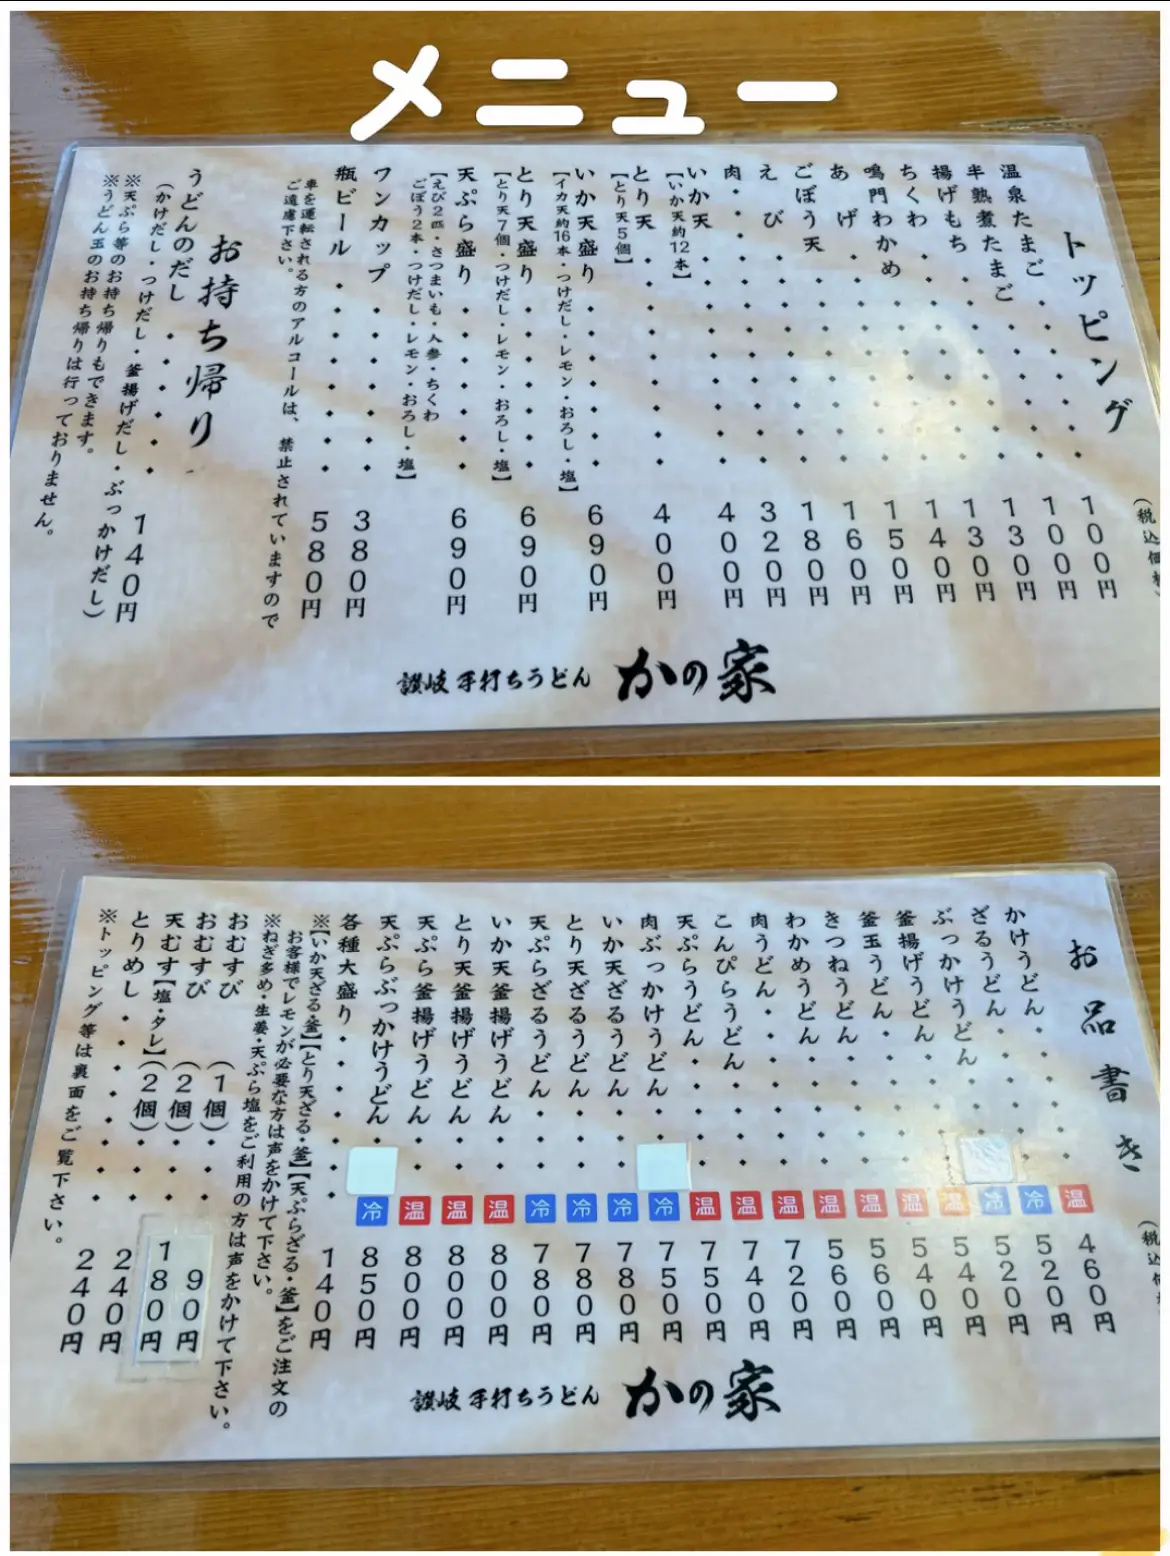 メニュー
トッピング
(税込価格)
温泉たまご・・・・100円
半熟煮たまご・・・・100円
揚げもち・・・・・130円
ちくわ・・・・・・130円
鳴門わかめ・・・・140円
あげ・・・・・・150円
ごぼう天・・・・・160円
えび・・・・・・180円
肉・・・・・・・320円
いか天・・・・・・400円
【いか天約12本】
とり天・・・・・・400円
【とり天5個】
いか天盛り・・・・・・690円
【イカ天約16本・つけだし・レモン・おろし・塩】
とり天盛り・・・・・・690円
【とり天7個・つけだし・レモン・おろし・塩】
天ぷら盛り・・・・・・690円
【えび2匹・さつまいも・人参・ちくわ
ごぼう2本・つけだし・レモン・おろし・塩】
ワンカップ・・・・・・380円
瓶ビール・・・・・・・580円
車を運転される方のアルコールは、禁止されていますので
ご遠慮下さい。
お持ち帰り
うどんのだし・・・・・・140円
(かけだし・つけだし・釜揚げだし・ぶっかけだし)
※天ぷら等のお持ち帰りもできます。
※うどん玉のお持ち帰りは行っておりません。
讃岐手打ちうどん かの家
お品書き
(税込価
かけうどん・・・・温460円
ざるうどん・・・・冷520円
ぶっかけうどん・・・冷520円
釜揚げうどん・・・・温540円
釜玉うどん・・・・温540円
きつねうどん・・・・温560円
わかめうどん・・・・温560円
肉うどん・・・・・温720円
こんぴらうどん・・・温740円
天ぷらうどん・・・・温750円
肉ぶっかけうどん・冷750円
いか天ざるうどん・・・冷780円
とり天ざるうどん・・・冷780円
天ぷらざるうどん・・・冷780円
いか天釜揚げうどん・・温800円
とり天釜揚げうどん・・温800円
天ぷら釜揚げうどん・・温800円
天ぷらぶっかけうどん・冷850円
各種大盛り・・・・・・140円
※【いか天ざる・釜】【とり天ざる・釜】【天ぷらざる・釜】をご注文の
お客様でレモンが必要な方は声をかけて下さい。
※ねぎ多め・生姜・天ぷら塩をご利用の方は声をかけて下さい。
おむすび (1個)・・90円
おむすび (2個)・・180円
天むす【塩・タレ】(2個)・・240円
とりめし・・・・・・240円
※トッピング等は裏面をご覧下さい。
讃岐手打ちうどん かの家